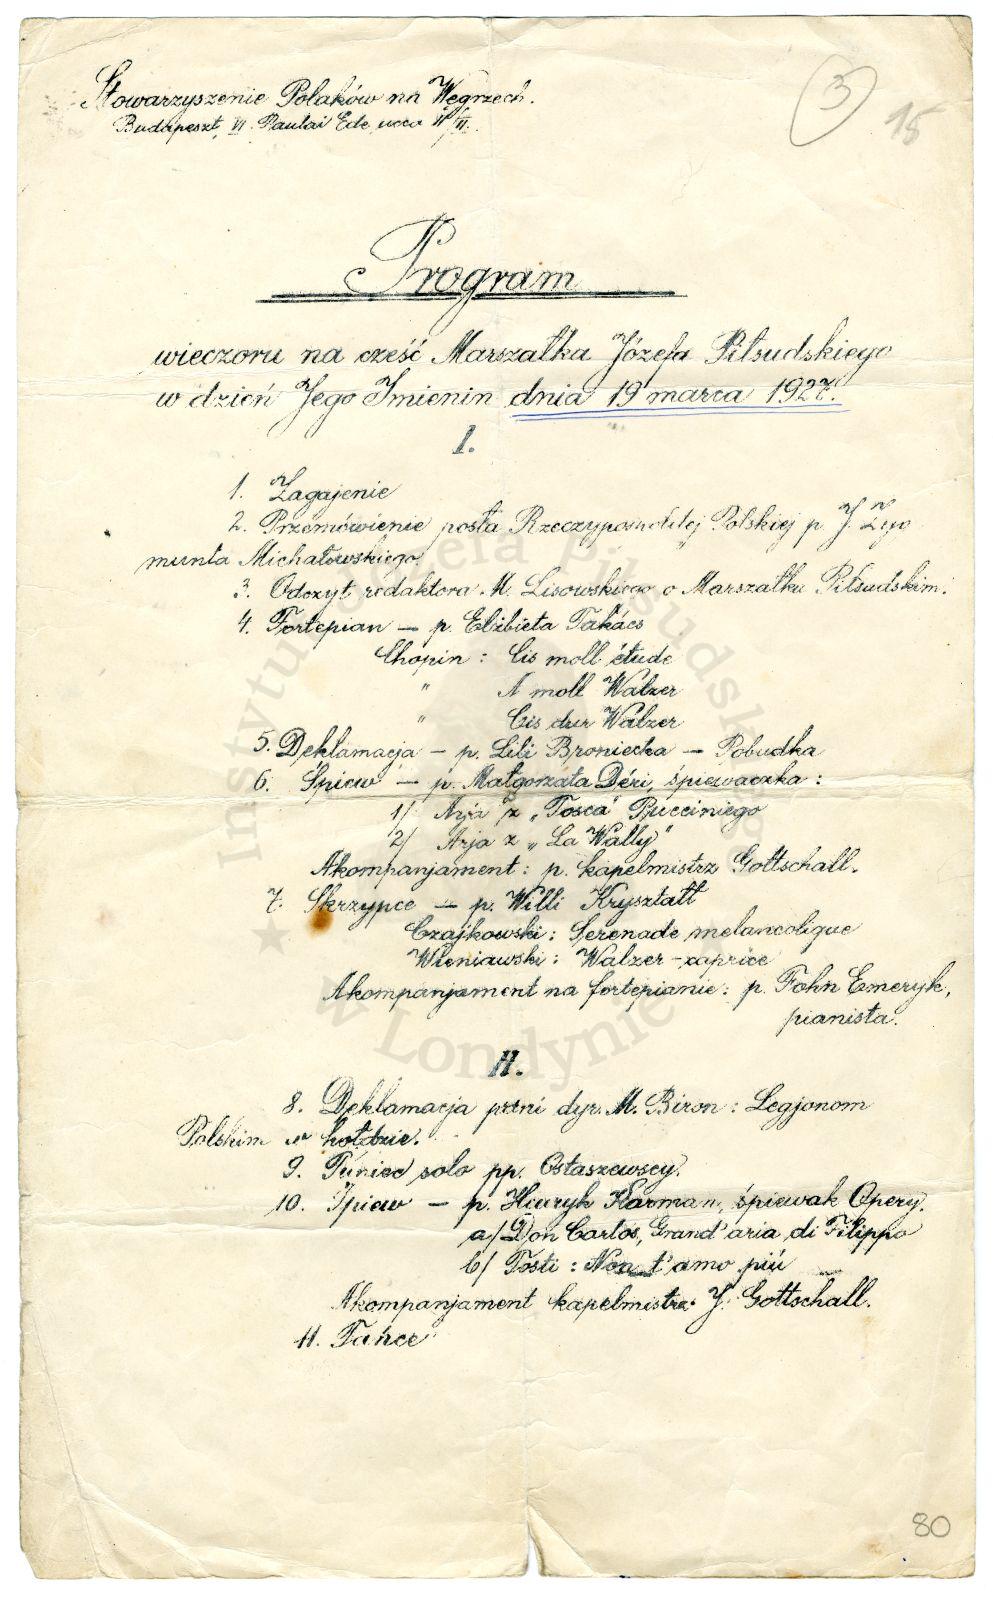 Stowarzyszenie Polaków na Węgrzech.
Budapeszt, VI. Paulai Ede ucca II.
3
15
Program
wieczoru na cześć Marszałka Józefa Piłsudskiego
w dzień Jego Imienin dnia 19 marca 1927.
I.
1. Zagajenie
2. Przemówienie posła Rzeczypospolitej Polskiej p. J. Zyg
munta Michałowskiego.
3. Odczyt redaktora M. Lisowskiego o Marszałku Piłsudskim.
4. Fortepian — p. Elżbieta Takács
Chopin : Cis moll étude
" A moll Walzer
" Cis dur Walzer
5. Deklamacja — p. Lili Broniecka — Pobudka
6. Śpiew — p. Małgorzata Déri, śpiewaczka :
1/ Arja z „Tosca" Pucciniego
2/ Arja z „La Wally"
Akompanjament : p. kapelmistrz Gottschall.
7. Skrzypce — p. Willi Kryształł
Czajkowski : Serenade melancolique
Wieniawski : Walzer-caprice
Akompanjament na fortepianie : p. Fohn Emeryk,
pianista.
II.
8. Deklamacja pani dyr. M. Biron : Legjonom
Polskim w hołdzie.
9. Taniec solo pp. Ostaszewscy.
10. Śpiew — p. Henryk Karman, śpiewak Opery.
a/ Don Carlos, Grand'aria di Filippo
b/ Tosti : Non t'amo più
Akompanjament kapelmistrz J. Gottschall.
11. Tańce
80
Instytut Józefa Piłsudskiego
w Londynie